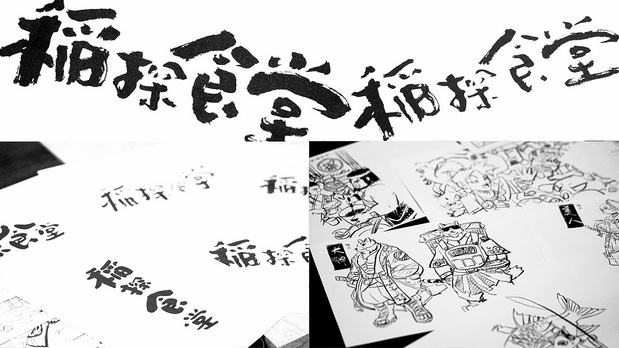 稲探食堂 稲探食堂
稲探食堂
食堂
稲探食
稲探食堂